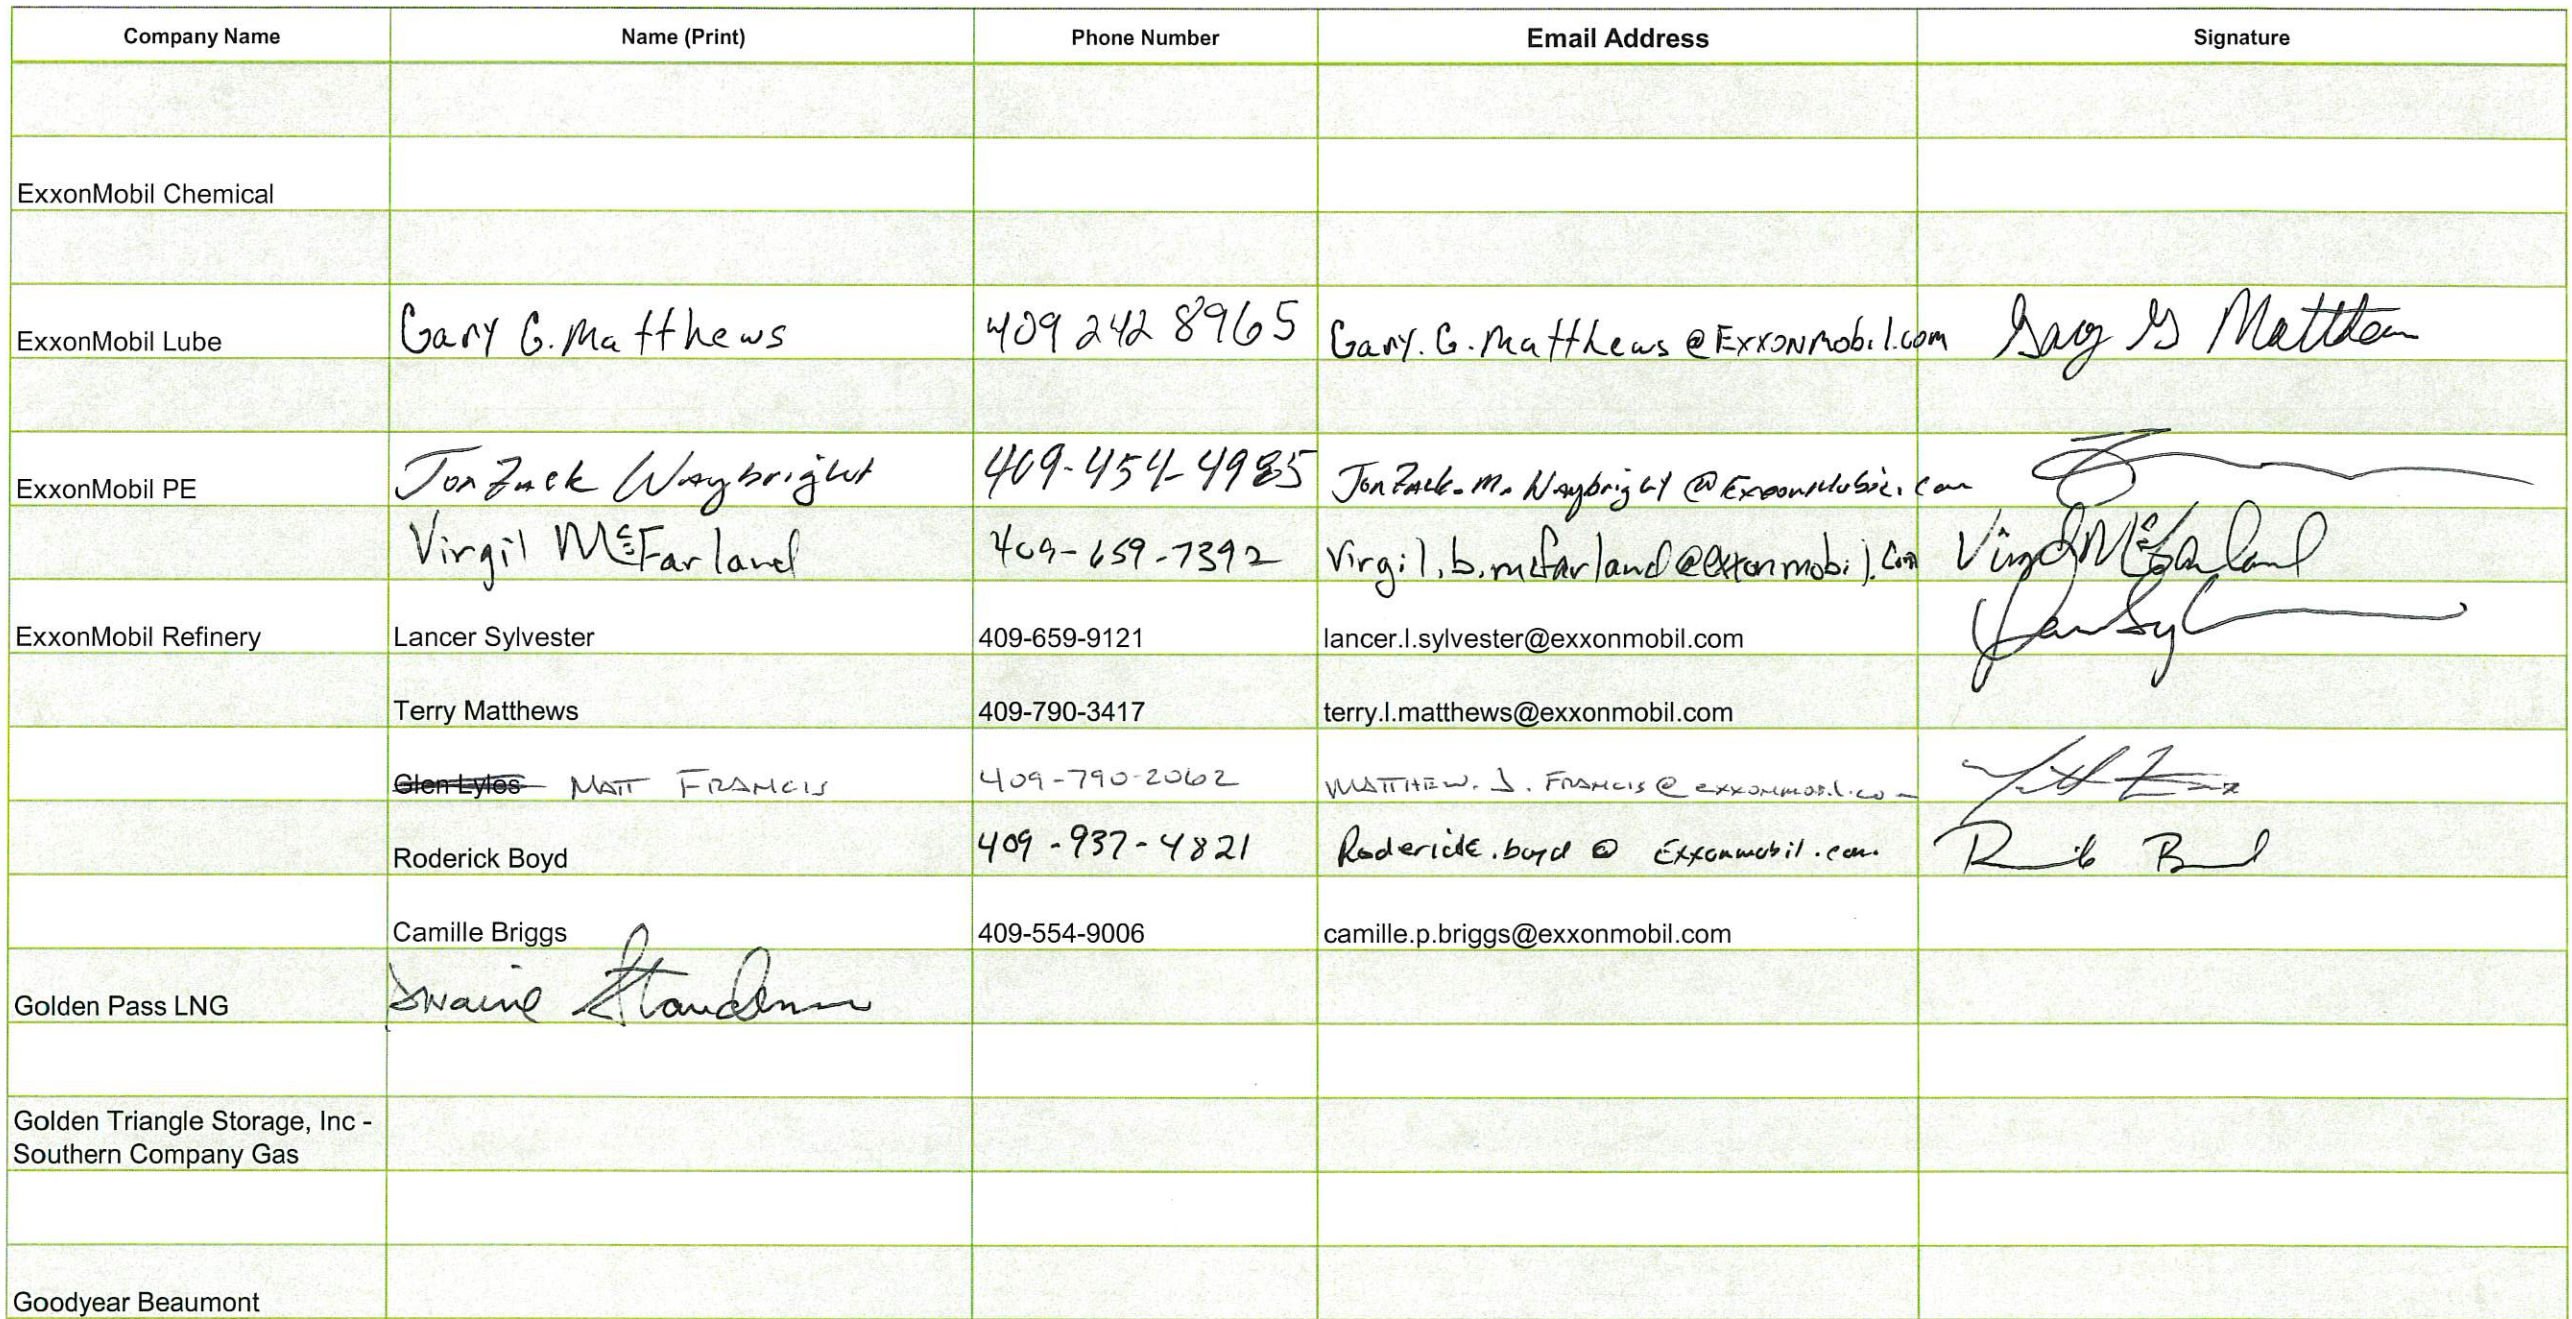 Company Name Name (Print) Phone Number Email Address Signature
ExxonMobil Chemical
ExxonMobil Lube Gary G. Matthews 409 242 8965 Gary.G.Matthews@ExxonMobil.com Gary G Matthews
ExxonMobil PE JonZack Waybright 409-454-4985 JonZack.M.Waybright@ExxonMobil.com
Virgil McFarland 409-659-7392 Virgil.b.mcfarland@exxonmobil.com Virgil McFarland
ExxonMobil Refinery Lancer Sylvester 409-659-9121 lancer.l.sylvester@exxonmobil.com
Terry Matthews 409-790-3417 terry.l.matthews@exxonmobil.com
Glen Lyles MATT FRANCIS 409-790-2062 MATTHEW.J.FRANCIS@exxonmobil.com
Roderick Boyd 409-937-4821 Roderick.boyd@Exxonmobil.com
Camille Briggs 409-554-9006 camille.p.briggs@exxonmobil.com
Golden Pass LNG Dwaine
Golden Triangle Storage, Inc -
Southern Company Gas
Goodyear Beaumont